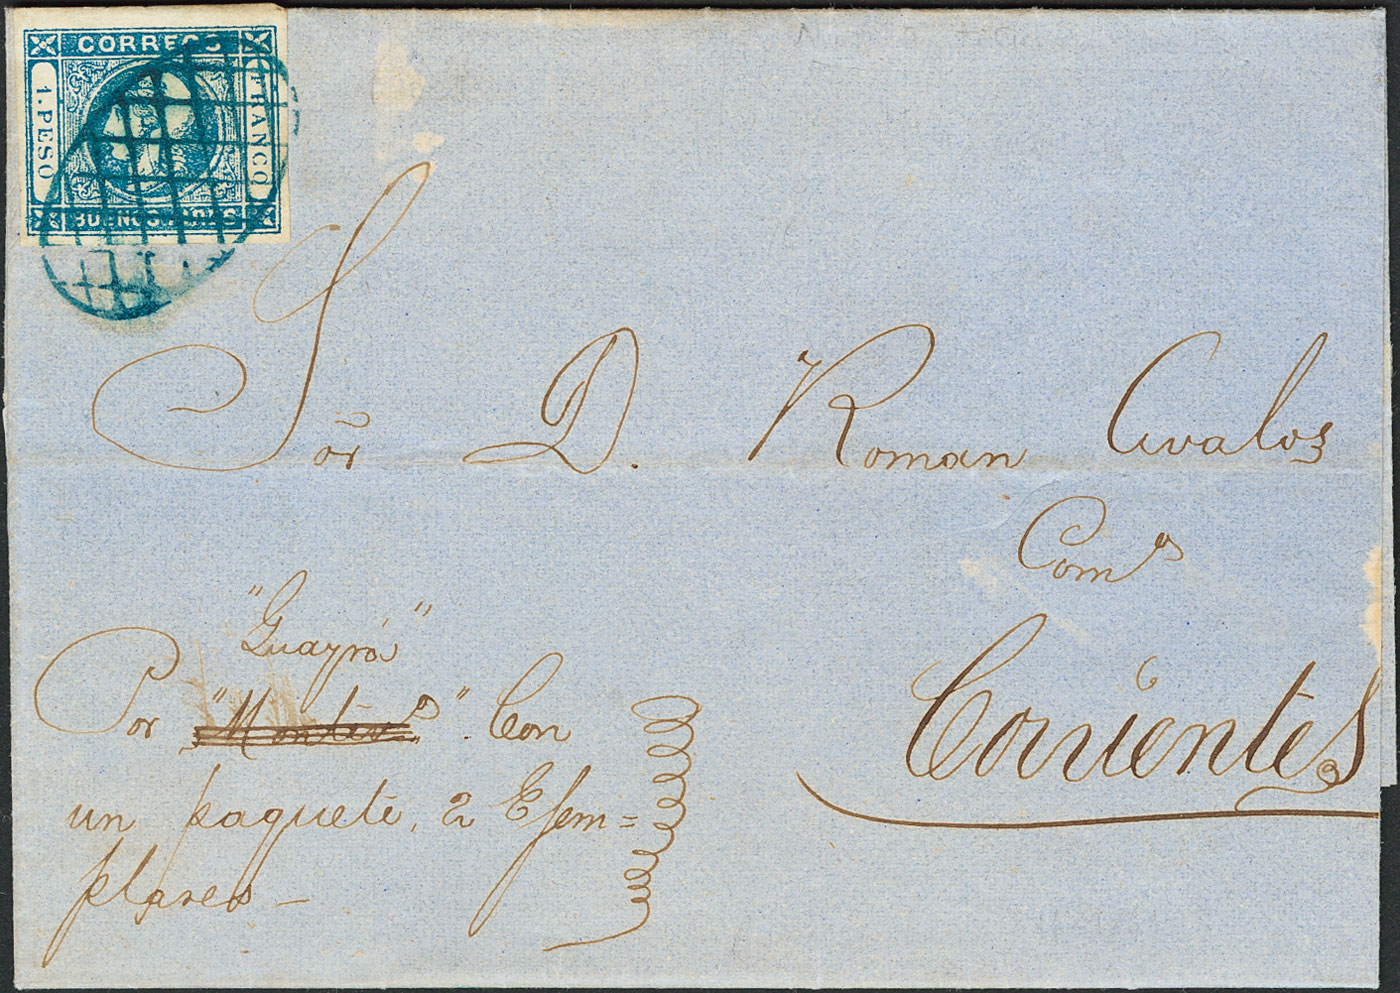 CORREOS
1. PESO
FRANCO
BUENOS AIRES
Sõr D. Roman Avalos
Com.s
Corrientes
"Guayrá"
Por "Montev.o" Con
un paquete, 2 Ejem=
plares—